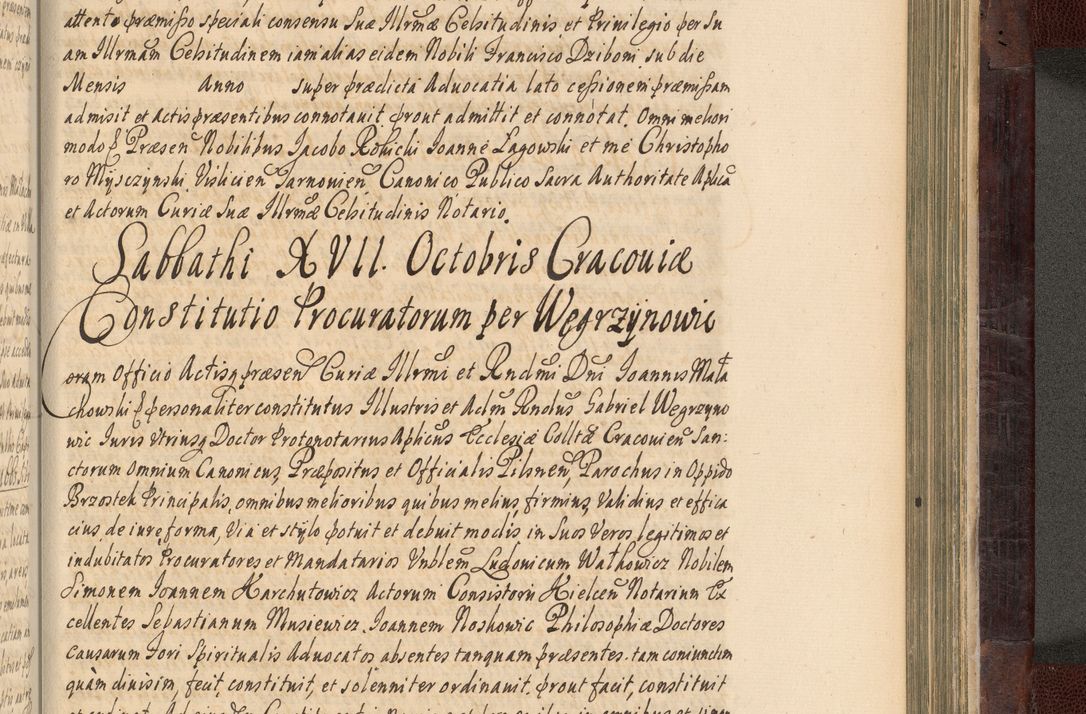 attento præmisso speciali consensu Suæ Illrmæ Celsitudinis et Privilegio per Su
am Illrmam Celsitudinem iam alias eidem Nobili Francisco Dziboni, sub die
Mensis Anno super prædicta Aduocatia lato cessionem præmissam
admisit et Actis præsentibus connotauit prout admittit et connotat. Omni meliori
modo Præsen Nobilibus Jacobo Robicki Joanne Łagowski et me Christopho
ro Mysczynski Vislicien Tarnouien Canonico Publico Sacra Authoritate Aplica
et Actorum Curiæ Suæ Illrmæ Celsitudinis Notario.
Sabbathi XVII. Octobris Cracouiæ
Constitutio Procuratorum per Węgrzynowic
Coram Officio Actisq præsen Curiæ Illrmi et Rndmi Dni Joannis Mała
chowski personaliter constitutus Illustris et Adm Rndus Gabriel Węgrzyno
wic Juris Vtriusq Doctor Protonotarius Aplicus Ecclesiæ Colltæ Cracouien San:
ctorum Omnium Canonicus, Præpositus et Officialis Pilsnen, Parochus in Oppido
Brzostek Principalis, omnibus melioribus quibus melius, firmius, Validius et effica
cius, de iure, forma, Via et stylo potuit et debuit modis, in Suos Veros legitimos et
indubitatos Procuratores et Mandatarios Vnblem Ludouicum Wałkowicz Nobilem
Simonem Joannem Harchutowicz Actorum Consistorii Kielcen Notarium Ex
cellentes Sebastianum Musiewicz, Joannem Noskowic Philosophiæ Doctores
Causarum Fori Spiritualis Aduocatos absentes tanquam præsentes. tam coniunctim
quàm diuisim, fecit, constituit, et solenniter ordinauit, prout facit, constituit